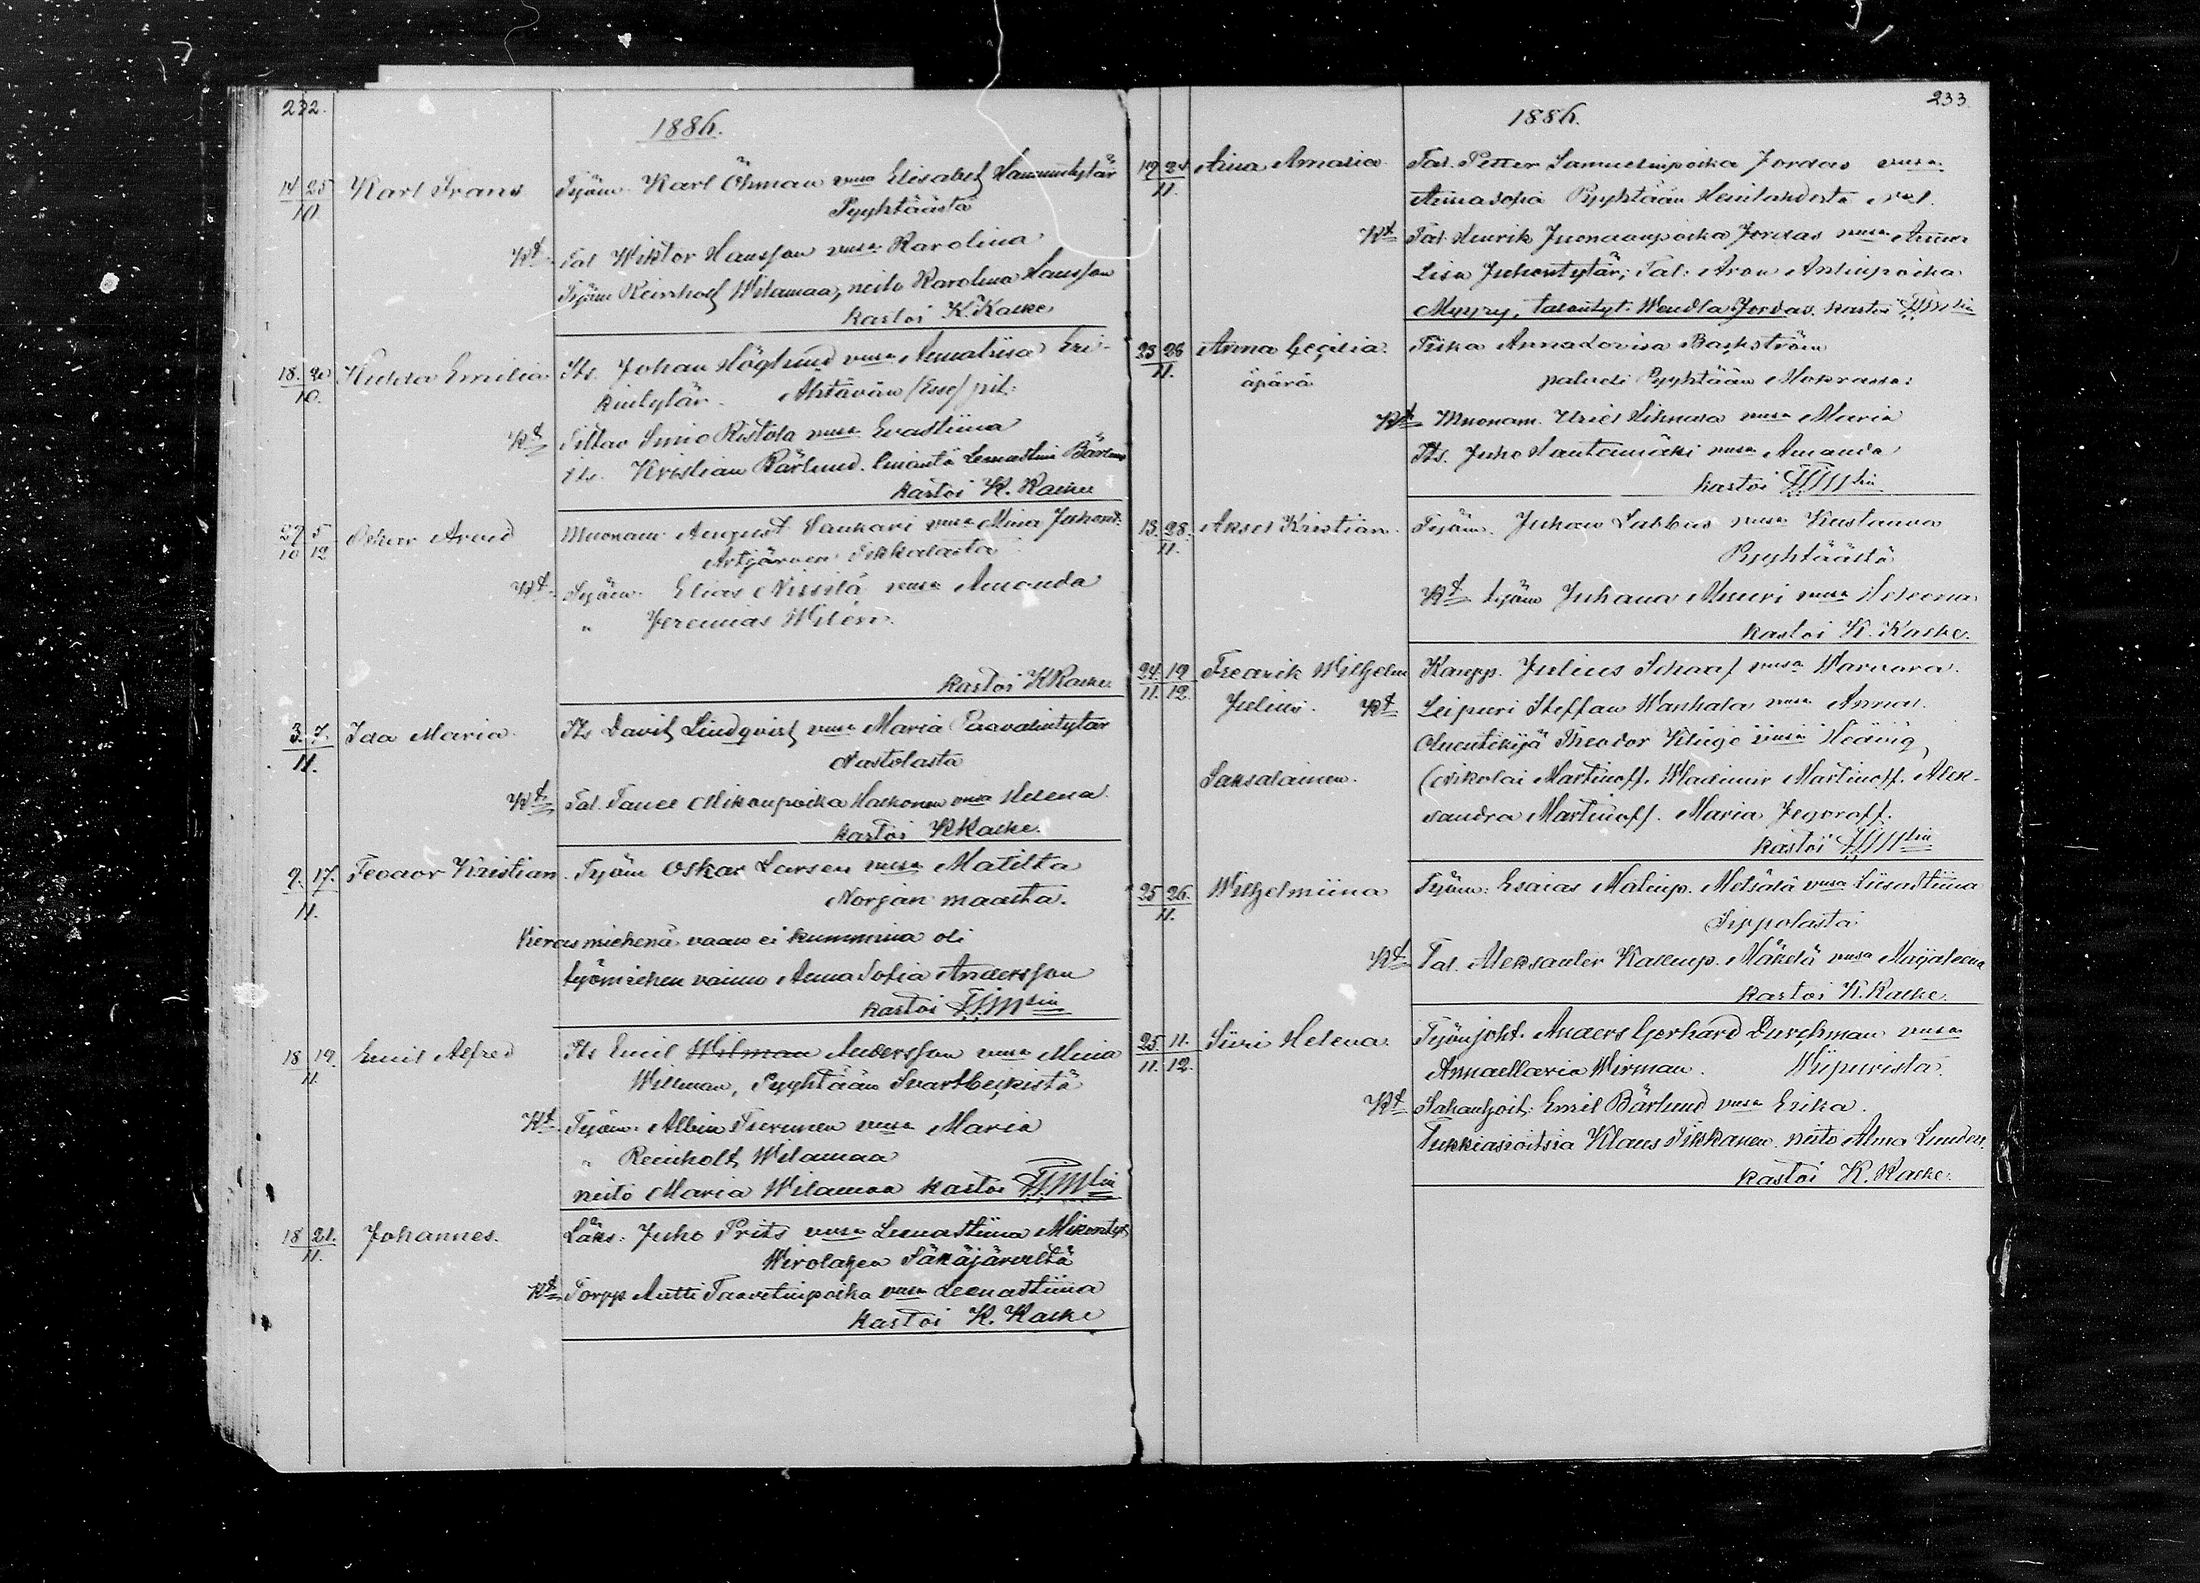 232.
1886.
14 25 Karl Frans Työm. Karl Öhman vmsa Elisabet Hannuntytär
10. Pyyhtäästä
Kt Tal Wiktor Hansson vmsa Karolina
Työm Reinholt Wilamaa, neito Karolina Hansson
kastoi K. Kaske
18. 20 Hulda Emilia Its. Johan Höglund vmsa Annaliisa Eri-
10. kintytär. Ahtävän /Esse/ pit.
Kt Simo Ristola vmsa Evastiina
Its. Kristian Bärlund. Emäntä Leenastini Bärlund
kastoi K. Kaske
29 5 Oskar Arvid Muonam August Sankari vmsa Miina Juhont.
10 12 Artjärven
Kt Työm. Elias Nissilä vmsa Amanda
" Jeremias Wilén.
kastoi K Kaske
3. 7. Ida Maria. Its David Lindqvist vmsa Maria Paavalintytär
11. Nastolasta
Kt Tal. Taneli Mikonpoika Halkonen vmsa Helena.
kastoi K Kaske.
9. 17. Feodor Kristian. Työm Oskar Larsen vmsa Matilta
11. Norjan maasta.
Vierasmiehenä vaan ei kummina oli
työmiehen vaimo Anna Sofia Andersson
kastoi
18 19. Emil Alfred Its Emil Wilman Andersson vmsa Miina
11. Willman, Pyyhtään Svartbäkistä
Kt Työm. Albin Tiermen vmsa Maria
" Reinholt Wilamaa
neito Maria Wilamaa kastoi
18 21. Johannes. Läks. Juho Prits vmsa Leenastiina Mikontyt.
11. Wirolahen Säkäjärveltä
Kt Torpp Antti Taavetinpoika vmsa Leenastiina
kastoi K. Kaske
233.
1886.
19 21 Aina Amalia Tal. Petter Samuelinpoika Jordas vmsa
11. Annasofia Pyyhtään Heinlahdesta
Kt Tal. Henrik Juonaanpoika Jordas vmsa Anna
Lisa Juhontytär; Tal. Aron Antinpoika
Myyry, talontyt. Wendla Jordas. kastoi
23 26 Anna Cecilia. Piika Annalovisa Backström
11. äpärä palveli Pyyhtään Mokrassa.
Kt Muonam. Uriel Sihvola vmsa Maria
Its. Juho Santamäki vmsa Amanda
kastoi
13. 28. Aksel Kristian. Työm. Juhan Sabbas vmsa Kustaava
11. Pyyhtäästä
Kt työm Juhana Muuri vmsa Heleena
kastoi K. Kaske.
24. 19 Fredrik Wilhelm Kaupp. Julius Schaaf vmsa Warvara.
11. 12. Julius. Kt Leipuri Steffan Wanhala vmsa Anna.
Oluentekijä Theodor Kluge vmsa Hedvig
Saksalainen. (Nikolai Martinoff. Wladimir Martinoff. Alek-
sandra Martinoff. Maria Jegoroff.
kastoi
25 26. Wilhelmiina Työm. Esaias Matinp. Metsälä vmsa Liisastiina
11. Sippolasta
Kt Tal. Aleksanter Kallenp. Mäkelä vmsa Maijaleena
kastoi K. Kaske.
25. 11. Siiri Helena. Työnjoht. Anders Gerhard Durchman vmsa
11. 12. Annamaria Wirman. Wiipurista.
Kt Sahanhoit. Emil Bärlund vmsa Erika.
Tukkiasioitsia Klaus Sikkanen neito Alma Lindén.
kastoi K. Kaske.